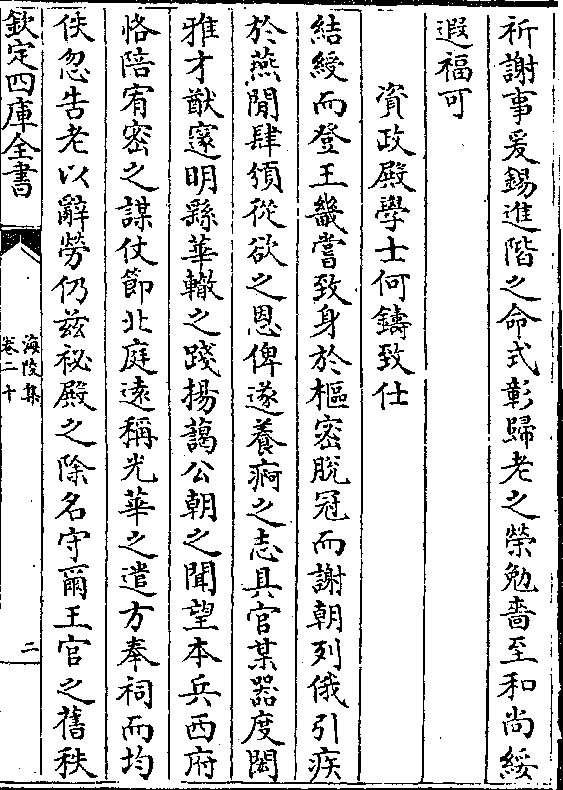 祈謝事爰錫進階之命式彰歸老之榮勉嗇至和尚綏
遐福可
資政殿學士何鑄致仕
結綬而登王畿嘗致身於樞密脫冠而謝朝列俄引疾
於燕閒肆頒從欲之恩俾遂養痾之志具官某器度閎
雅才猷邃明縣華轍之踐揚藹公朝之聞望本兵西府
恪陪宥密之謀仗節北庭遠稱光華之遣方奉祠而均
佚忽告老以辭勞仍兹祕殿之除名守爾王官之舊秩
欽定四庫全書
海陵集
卷二十
二